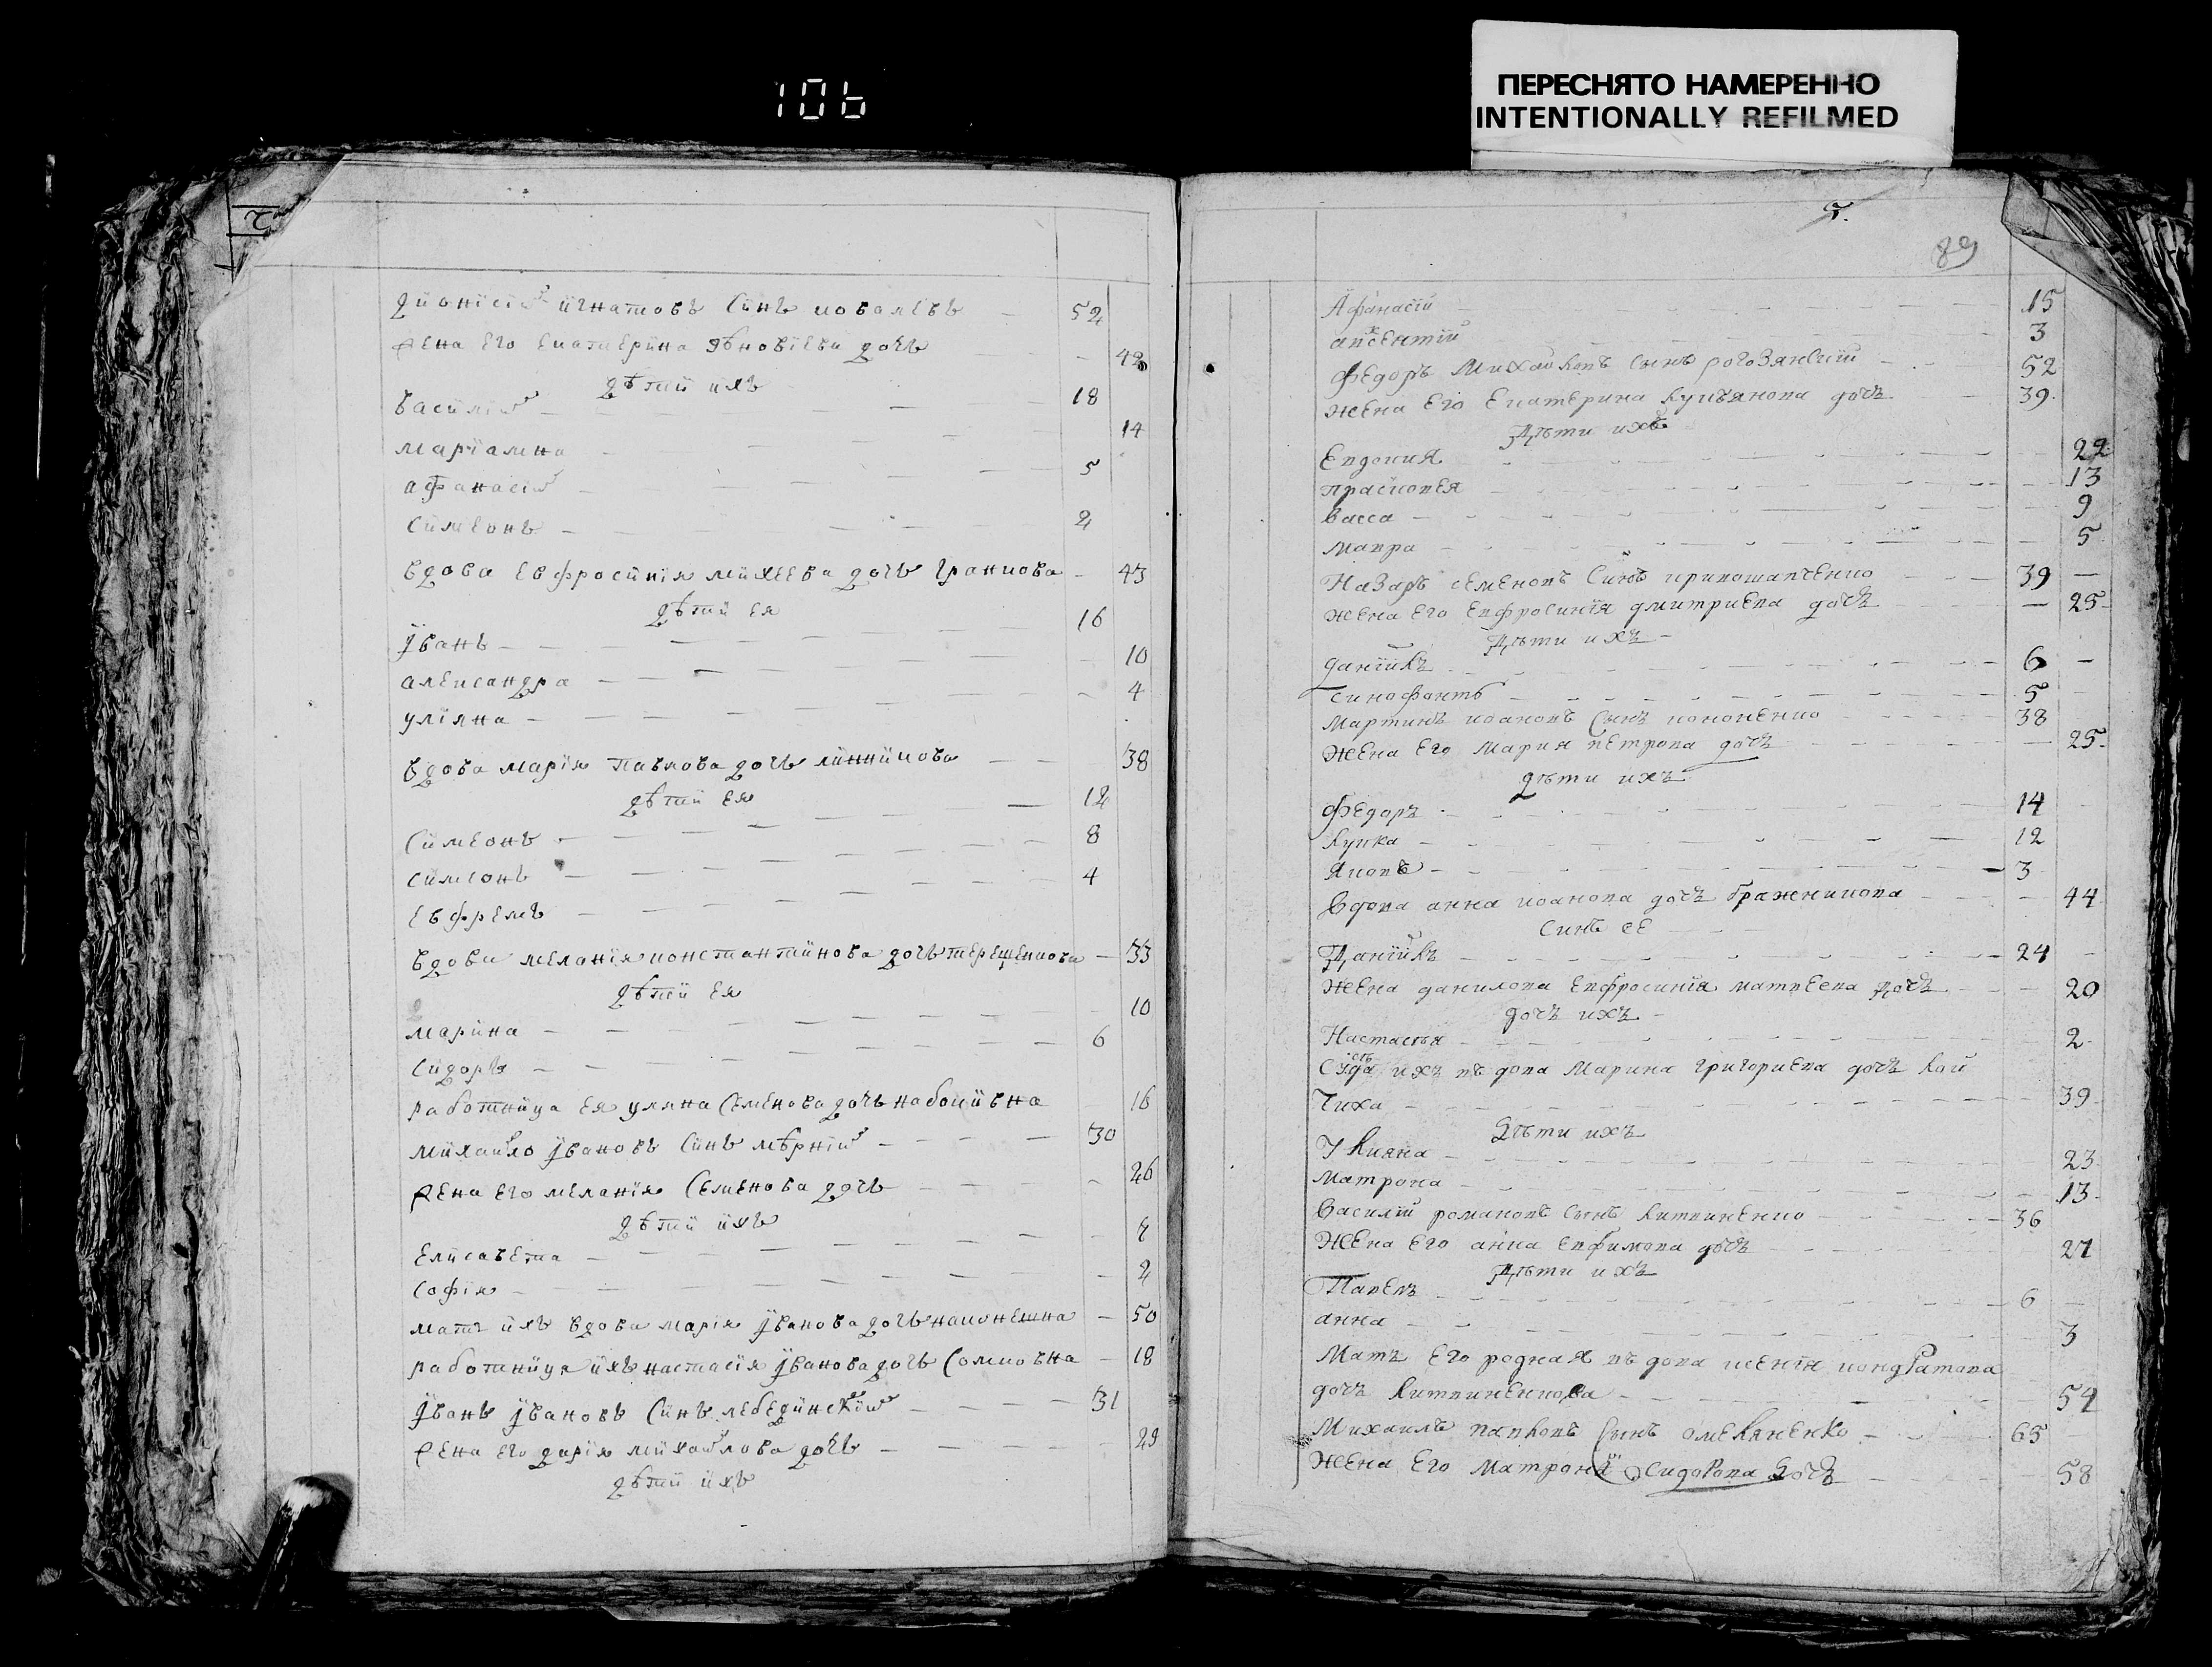 106
ПЕРЕСНЯТО НАМЕРЕННО
INTENTIONALLY REFILMED
Дионисій игнатовъ синъ коваліовъ 52
жена его екатерина дочъ 42
дѣти ихъ
василій 18
маріамна 14
афанасій 5
симеонъ 2
вдова евфросинія михеева дочъ 43
дѣти ея
Іванъ 16
александра 10
уліяна 4
вдова марія павлова дочъ 38
дѣти ея
симеонъ 12
симеонъ 8
евфремъ 4
вдова меланія константинова дочъ терещенкова 33
дѣти ея
марина 10
сидоръ 6
работница ея уляна семенова дочъ 16
михайло Івановъ синъ мѣрній 30
жена его меланія семенова дочъ 26
дѣти ихъ
елисавета
софія 2
мать ихъ вдова марія Іванова дочъ 50
работниця ихъ настасія Іванова дочъ 18
Іванъ Івановъ синъ лебединскій 31
жена его дарія михайлова дочъ 29
дѣти ихъ
5.
89
Афанасій 15
авксентій 3
Федоръ Михайловъ сынъ роговянскій 52
жена его екатерина лукьянова дочъ 39
Дѣти ихъ
Евдокия 22
прасковея 13
васса 9
мавра 5
Назаръ семеновъ синъ 39
жена его евфросинія дмитриева дочъ 25
Дѣти ихъ
даніилъ 6
5
мартинъ иоановъ сынъ кононенко 38
жена его мария петрова дочъ 25
дѣти ихъ
федоръ 14
лука 12
яковъ 3
вдова анна иоанова дочъ бражникова 44
синъ ее
Даніилъ 24
жена данилова евфросинія матвеева дочъ 20
дочъ ихъ
Настасья 2
ихъ вдова Марина григориева дочъ кол
чиха 39
дѣти ихъ
Улияна 23
матрона 13
василій романовъ сынъ литвиненко 36
жена его анна евфимова дочъ 27
Дѣти ихъ
Павелъ 6
анна 3
Мать его родная вдова ксенія кондратова
дочъ литвиненкова 54
Михаилъ павловъ сынъ омеляненко 65
жена его матрона сидорова дочъ 58